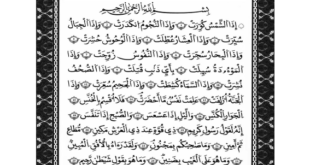 بِسْمِ اللهِ الرَّحْمٰنِ الرَّحِيمِ
إِذَا الشَّمْسُ كُوِّرَتْ ۝ وَإِذَا النُّجُومُ انْكَدَرَتْ ۝ وَإِذَا
سُيِّرَتْ ۝ وَإِذَا الْعِشَارُ عُطِّلَتْ ۝ وَإِذَا الْوُحُوشُ حُشِرَتْ ۝
وَإِذَا الْبِحَارُ سُجِّرَتْ ۝ وَإِذَا النُّفُوسُ زُوِّجَتْ ۝ وَإِذَا
الْمَوْءُدَةُ سُئِلَتْ ۝ بِأَيِّ ذَنْبٍ قُتِلَتْ ۝ وَإِذَا الصُّحُفُ
نُشِرَتْ ۝ وَإِذَا السَّمَاءُ كُشِطَتْ ۝ وَإِذَا الْجَحِيمُ سُعِّرَتْ ۝ وَإِذَا
الْجَنَّةُ أُزْلِفَتْ ۝ عَلِمَتْ نَفْسٌ مَا أَحْضَرَتْ ۝ فَلَا أُقْسِمُ بِالْخُنَّسِ ۝
الْجَوَارِ الْكُنَّسِ ۝ وَاللَّيْلِ إِذَا عَسْعَسَ ۝ وَالصُّبْحِ إِذَا تَنَفَّسَ ۝
إِنَّهُ لَقَوْلُ رَسُولٍ كَرِيمٍ ۝ ذِي قُوَّةٍ عِنْدَ ذِي الْعَرْشِ مَكِينٍ ۝ مُطَاعٍ
ثَمَّ أَمِينٍ ۝ وَمَا صَاحِبُكُمْ بِمَجْنُونٍ ۝ وَلَقَدْ رَآهُ بِالْأُفُقِ الْمُبِينِ ۝
وَمَا هُوَ عَلَى الْغَيْبِ بِضَنِينٍ ۝ وَمَا هُوَ بِقَوْلِ شَيْطٰنٍ رَجِيمٍ ۝